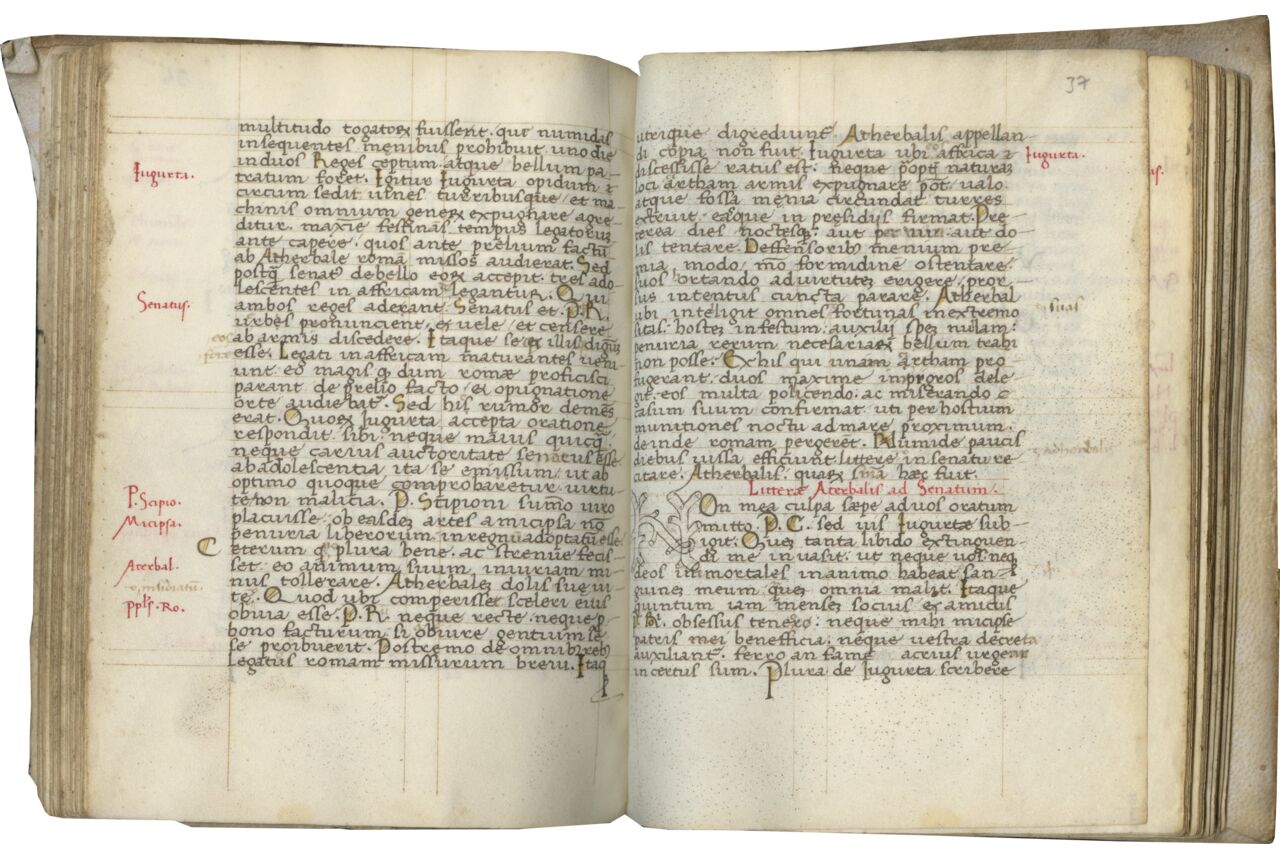 multitudo togatoꝝ fuissent. que numidas
insequentes menibus prohibuit uno die
induos Reges ceptum. atque bellum pa-
Iugurta.
tratum foret. Igitur Iugurta opidum
circum sedit uineis turribusque / et ma-
chinis omnium geneꝝ expugnare agre-
ditur. maxīe festinās tempus legatoruꝫ
ante capere. quos ante prelium factū
ab Atherbale romā missos audierat. Sed
postq̄ senat9 de bello eoꝝ accepit. tres ado-
lescentes in affricam legantur. Qui
Senatus.
ambos reges aderant. Senatus et. P. R.
uelle / et censere
ab armis discedere. Itaque se illis dignū
esse. Legati in affricam maturantes ueni-
unt eo magis q̄ dum romæ proficisci
parant de prelio facto / et opugnatione
audiebāt. Sed his rumor clemēs
erat. Quoꝝ Iugurta accepta oratione
respondit sibi. neque maius quicq̄
neque carius auctoritate senatus esse
ab adolescentia ita se emissum. ut ab
optimo quoque comprobaretur uirtu-
P. Scipio.
te non malicia. P. Scipioni sumo uiro
Micipsa.
placuisse. ob easdeꝫ artes a micipsa nō
penuria liberorum in regnū adoptatū esse
ceterum q̄ plura bene. ac strenue fecis-
Aterbal.
set. eo animum suum iniuriam mi-
nus tollerare. Atherbaleꝫ dolis sue ui-
te. Quod ubi comperisset sceleri eius
Ppl̄s. Ro.
obuia esse. P. R. neque recte. neque p
bono facturum. si gentium se-
se proibuerit. Postremo de omnibꝫ rebꝫ
legatus romam missurum breui. Itaq
37
utrique digrediunt. Atherbalis appellan-
di copia non fuit. Iugurta ubi affrica
Iugurta.
discessisse ratus est. neque ꝓpt naturaꝫ
loci artham armis expugnare pōt. ualo.
atque fossa menia circundat. turres
extruit. easque in presidijs firmat. Pre-
terea dies noctesque aut per uiꝫ. aut do-
lis tentare. Deffensoribꝫ menium pre-
mia modo. mō formidine ostentare.
suos ortando aduirtuteꝫ erigere. pror-
sus intentus cuncta parare. Atherbal
ubi inteligit omnes fortunas in extremo
suas
sitas. hosteꝫ infestum. auxilij speꝫ nulam.
penuria rerum necesariaꝝ bellum trahi
non posse. Ex his qui unam artham pro-
fugerant. duos maxime dele-
git. eos multa policendo. ac miserando
casum suum confirmat. uti per hostium
munitiones noctu ad mare proximum.
deinde romam pergerēt. Numide paucis
diebus iussa efficiunt littere in senatu re-
citate. Atherbalis. quaꝝ snīa hæc fuit.
Litteræ Aterbalis ad Senatum.
Non mea culpa sæpe ad uos oratum
mitto. P. C. sed uis Iugurtæ sub-
igit. Queꝫ tanta libido extinguen-
di me inuasit. ut neque uos. neq
deos immortales in animo habeat san-
guineꝫ meum q̄ꝫ omnia malit. Itaque
quintum iam menseꝫ socius et amicus
P. R. obsessus teneor. neque mihi micipse
patris mei benefficia. neque uestra decreta
auxiliant. ferro an fame acrius urgear
incertus sum. Plura de Iugurta scribere